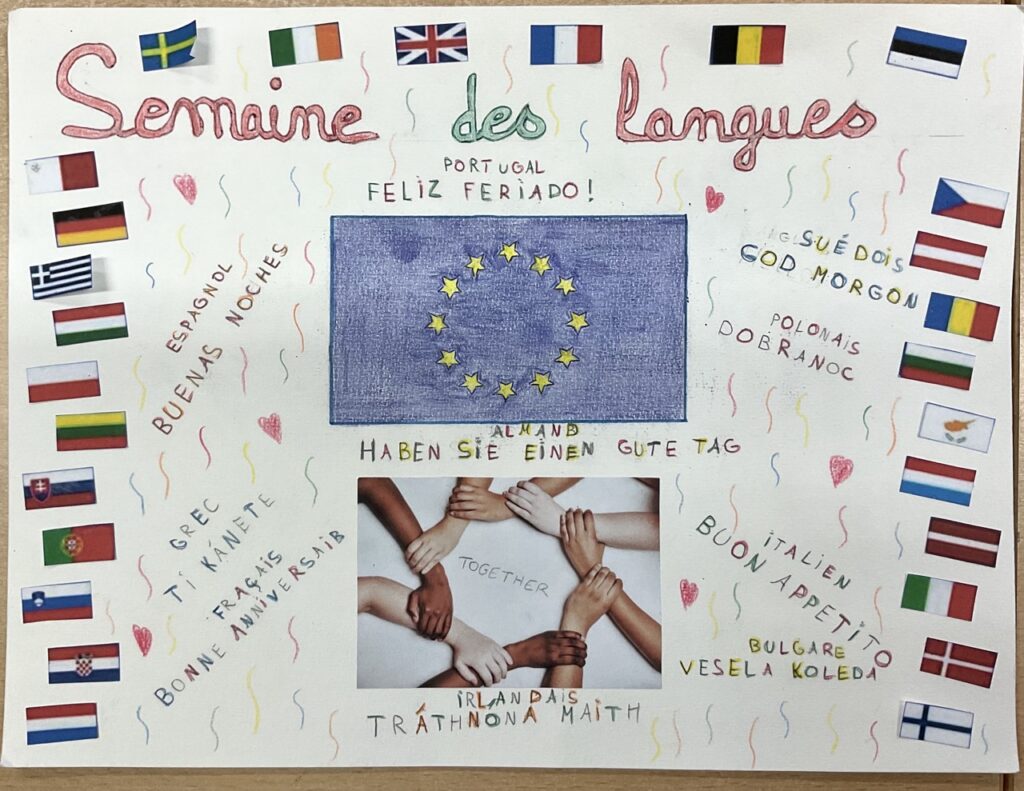 Semaine des langues
PORTUGAL
FELIZ FERIADO!
ESPAGNOL
BUENAS NOCHES
SUÉDOIS
GOD MORGON
POLONAIS
DOBRANOC
ALMAND
HABEN SIE EINEN GUTE TAG
GREC
TI KÁNETE
FRAÇAIS
BONNE ANNIVERSAIB
TOGETHER
ITALIEN
BUON APPETITO
BULGARE
VESELA KOLEDA
IRLANDAIS
TRÁTHNÓNA MAITH